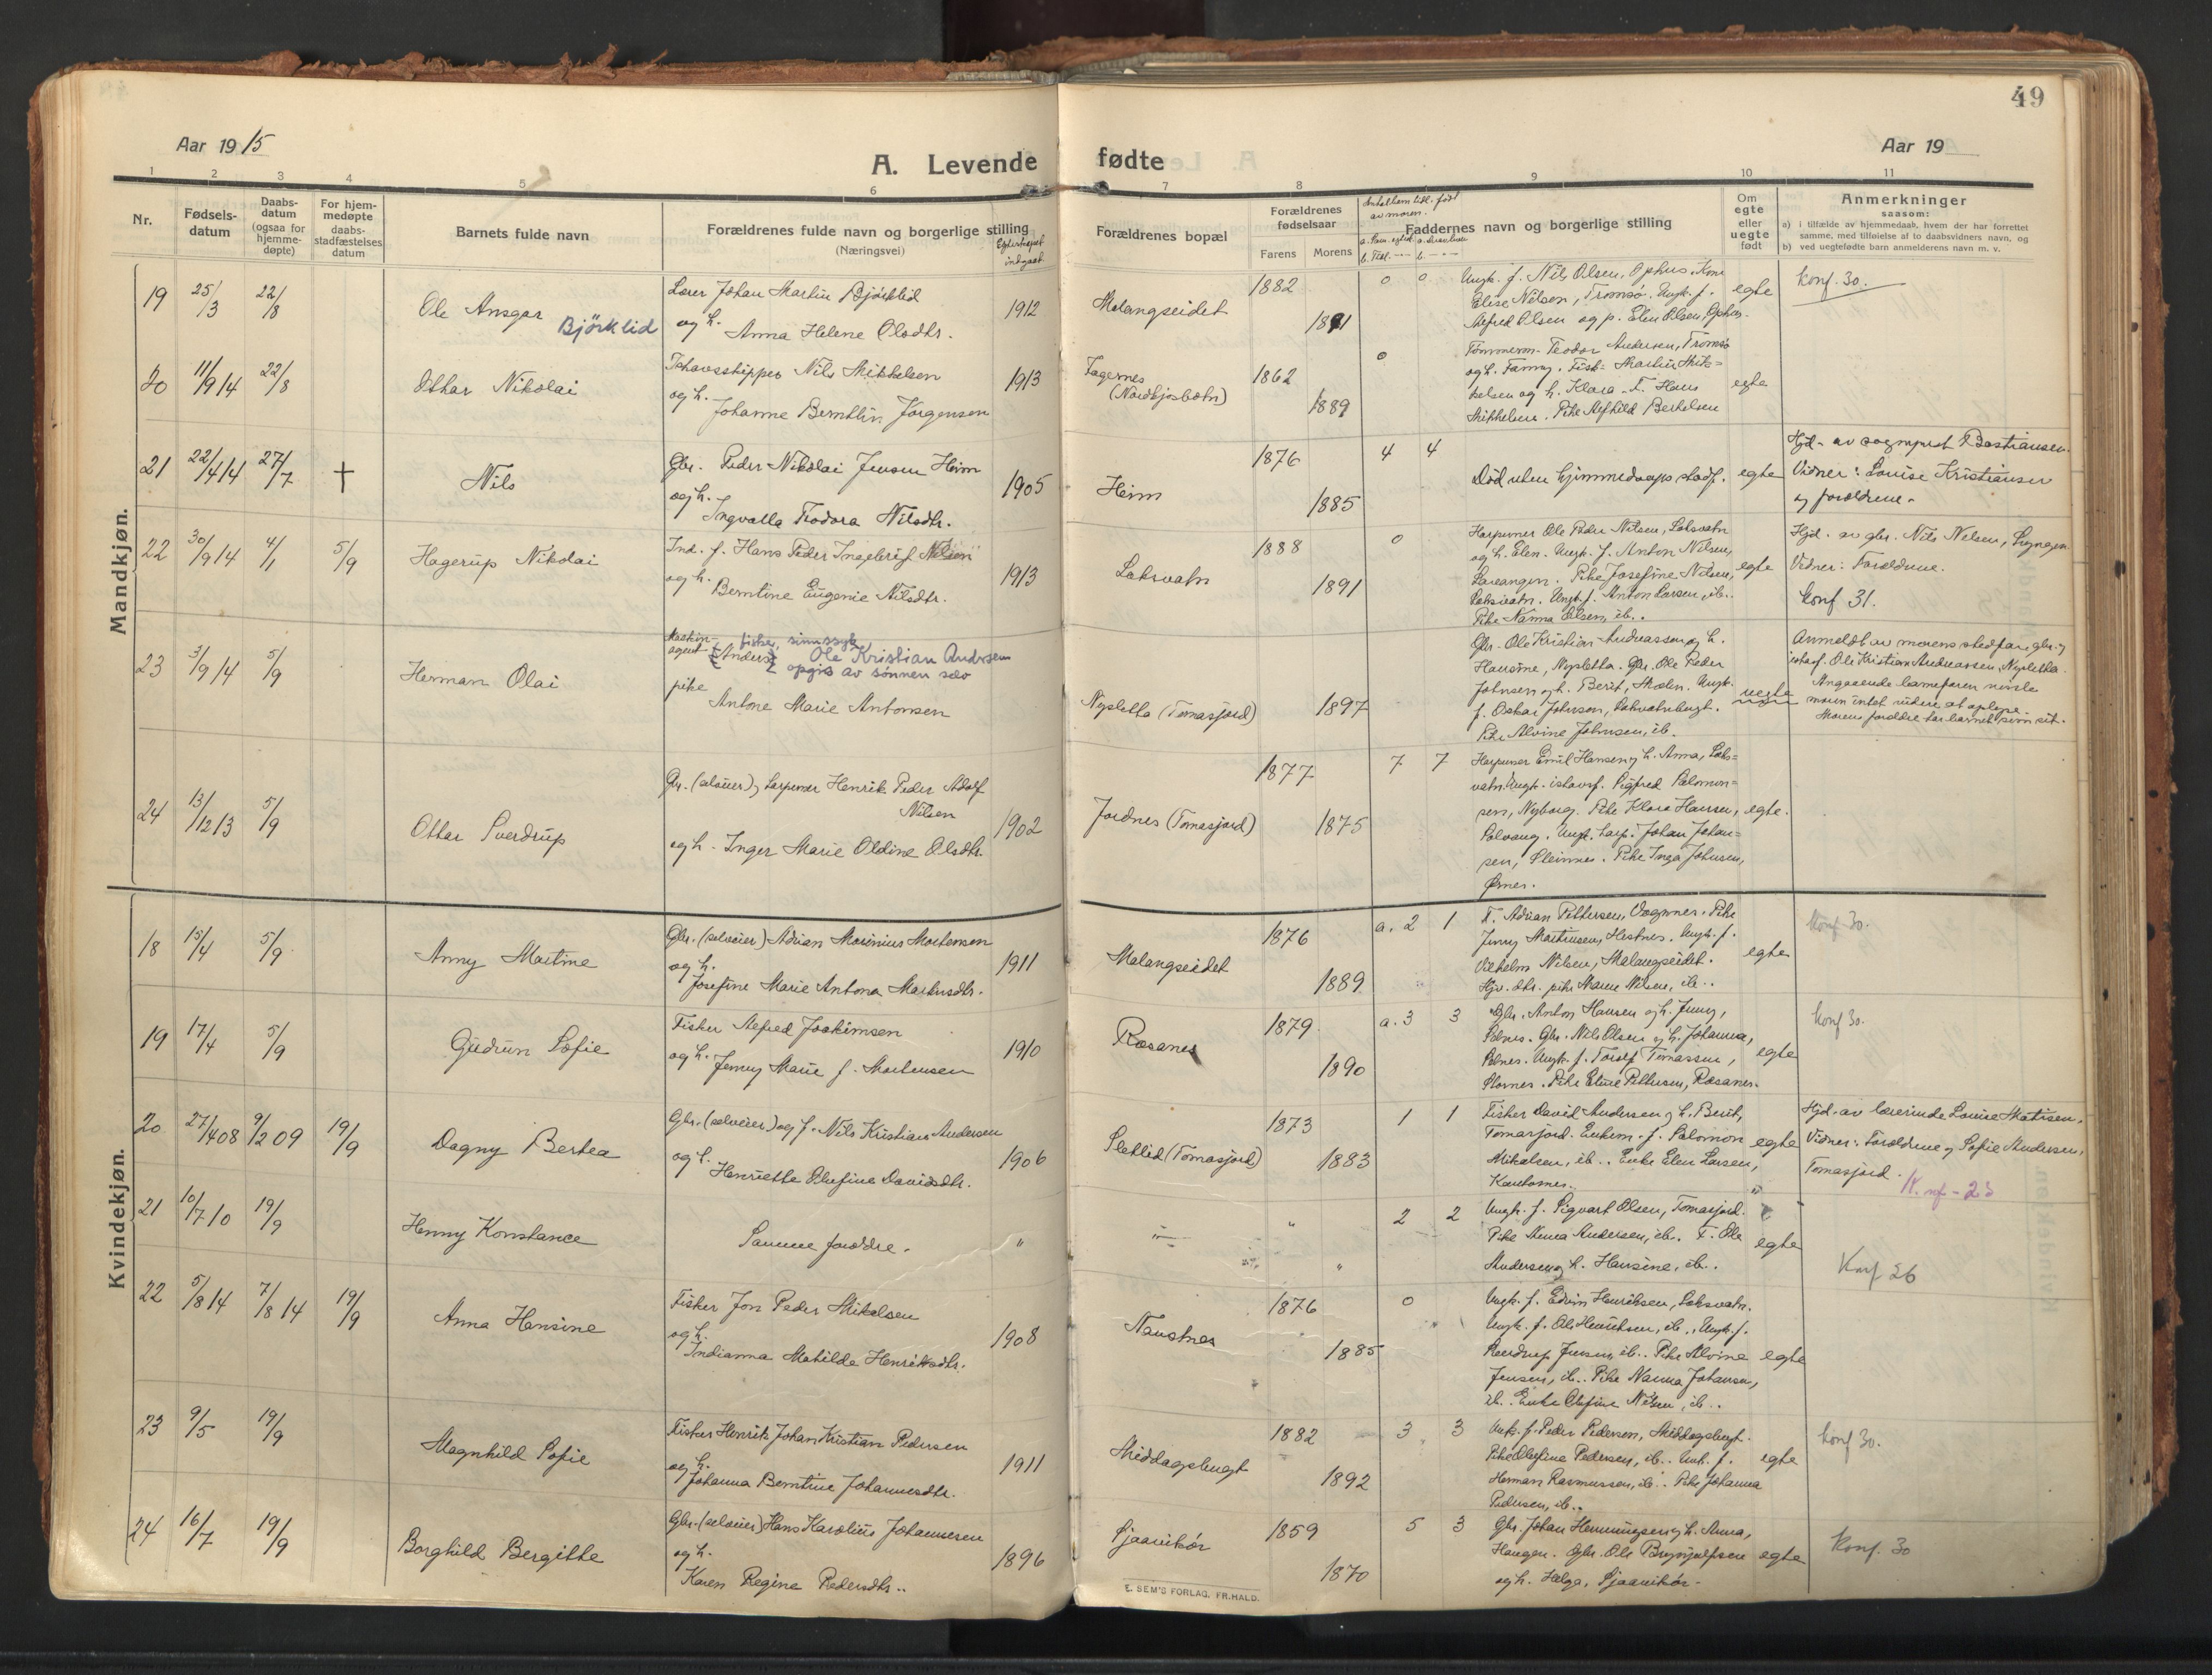 49
Aar 1915
A. Levende
fødte
Aar 19
1 2 3 4 5 6 7 8 9 10 11
Nr.
Fødsels-
datum
Daabs-
datum
(ogsaa for
hjemme-
døpte)
For hjem-
medøpte
daabs-
stadfæstelses
datum
Barnets fulde navn
Forældrenes fulde navn og borgerlige stilling
(Næringsvei)
Egteskapet
indgaat
Forældrenes bopæl
Forældrenes
fødselsaar
Farens Morens
av moren.
Faddernes navn og borgerlige stilling
Om
egte
eller
uegte
født
Anmerkninger
saasom:
a) i tilfælde av hjemmedaab, hvem der har forrettet
samme, med tilføielse af to daabsvidners navn, og
b) ved uegtefødte barn anmelderens navn m. v.
Mandkjøn.
19 25/3 22/8 Ole Ansgar Björklid
Lærer Johan Martin Bjørklid
og h. Anna Helene Olsdtr. 1912
Malangseidet 1882 1891 0 0
Ungk. f. Nils Olsen, Ophus. Kone
Elise Nilsen, Tromsø. Ungk. f.
Alfred Olsen og p. Elen Olsen, Ophus.
egte
konf. 30.
20 11/9 14 22/8 Othar Nikolai
Ishavsskipper Nils Mikkelsen
og h. Johanne Berntlin Jørgensen 1913
Fagernes
(Nordkjosbotn) 1862 1889 0
Tømmerm. Teodor Andersen, Tromsø
og h. Fanny. Fisk. Martin Mik=
kelsen og h. Klara. F. Hans
Mikkelsen. Pike Alfhild Berthelsen
egte
21 22/4 14 27/7 † Nils
Gbr. Peder Nikolai Jensen Heim
og h. Ingvalla Teodora Nilsdtr. 1905
Heim 1876 1885 4 4
Død uten hjemmedaaps stadf. egte
Hjd. av sogneprest Bastiansen.
Vidner: Louise Kristiansen
og forældrene.
22 30/9 14 4/1 5/9 Hagerup Nikolai
Ind. f. Hans Peder Ingebrigt Nilsen
og h. Berntine Eugenie Nilsdtr. 1913
Laksvatn 1888 1891 0
Harpuner Ole Peder Nilsen, Laksvatn
og h. Elen. Ungk. f. Anton Nilsen,
Pike Josefine Nilsen,
Laksvatn. Ungk. f. Anton Larsen, ib..
Pike Nanna Olsen, ib..
egte
Hjd. av gbr. Nils Nilsen, Lyngen
Vidner: Forældrene.
konf 31.
23 3/9 14 5/9 Herman Olai
fisker, sinnssyk
agent Anders Ole Kristian Andersen
opgis av sønnen selv
pike Antone Marie Antonsen
Nysletta (Tomasjord) 1897
Gbr. Ole Kristian Andreassen og h.
Hansine, Nysletta. Gbr. Ole Peder
Johnsen og h. Berit, Ungk.
f. Oskar Johnsen, Laksvatnbugt.
Pike Alvine Johnsen, ib.
uegte
Anmeldt av morens stedfar, gbr. og
ishavsf. Ole Kristian Andreassen, Nysletta.
Angaaende barnefaren visste
moren intet videre at oplyse.
Morens forældre tar barnet som sit.
24 13/12 13 5/9 Ottar Sverdrup
Gbr. (selveier) og harpuner Henrik Peder Adolf
Nilsen
og h. Inger Marie Oldine Olsdtr. 1902
Jordnes (Tomasjord) 1877 1875 7 7
Harpuner Emil Hansen og h. Anna, Laks=
vatn. Ungk. ishavsf. Sigfred Salomon=
sen, Nyborg. Pike Klara Hansen,
Solvang. Ungk. harp. Johan Johan=
sen, Sleinnes. Pike Inga Johnsen,
Ørnes.
egte.
Kvindekjøn.
18 15/4 5/9 Anny Martine
Gbr. (selveier) Adrian Marinius Mortensen
og h. Josefine Marie Antona Markusdtr. 1911
Malangseidet 1876 1889 a. 2 1
F. Adrian Pettersen, Vognnes. Pike
Jenny Martinsen, Hestnes. Ungk. f.
Vilhelm Nilsen, Malangseidet.
Hjv. dtr. pike Maren Nilsen, ib..
egte
konf 30.
19 17/4 5/9 Gudrun Sofie
Fisker Alfred Joakimsen
og h. Jenny Marie f. Mortensen 1910
Rosanes 1879 1890 a. 3 3
Gbr. Anton Hansen og h. Jenny,
Selnes. Gbr. Nils Olsen og h. Johanna,
Selnes. Ungk. f. Torolf Tomassen,
Slornes. Pike Eline Pettersen, Rosanes.
egte
konf 30.
20 27/4 08 9/2 09 19/9 Dagny Bertea
Gbr. (selveier) og f. Nils Kristian Andersen
og h. Henriette Olufine Davidsdtr. 1906
Sletlid (Tomasjord) 1873 1883 1 1
Fisker David Andersen og h. Berit,
Tomasjord. Enkem. f. Salomon
Mikalsen, ib.. Enke Elen Larsen,
Kantornes.
egte
Hjd. av lærerinde Louise Matisen.
Vidner: Forældrene og Sofie Andersen,
Tomasjord.
K. nf - 23
21 10/7 10 19/9 Henny Konstance
Samme forældre. "
" " " 2 2
Ungk. f. Sigvart Olsen, Tomasjord.
Pike Anna Andersen, ib. F. Ole
Andersen og h. Hansine, ib..
egte
Konf 26
22 5/8 14 7/8 14 19/9 Anna Hansine
Fisker Jon Peder Mikalsen
og h. Indianna Matilde Henriksdtr. 1908
Naustnes 1876 1885 0
Ungk. f. Edvin Henriksen, Laksvatn.
Ungk. f. Ole Henriksen, ib., Ungk. f.
Jensen, ib.. Pike Alvine
Jensen, ib.. Pike Nanna Johansen,
ib. Enke Olufine Nilsen, ib..
egte
23 9/5 19/9 Magnhild Sofie
Fisker Henrik Johan Kristian Pedersen
og h. Johanna Berntine Johannesdtr. 1911
Middagsbugt 1882 1892 3 3
Ungk. f. Peder Pedersen, Middagsbugt.
Pike Olufine Pedersen, ib.. Ungk. f.
Herman Rasmussen, ib.. Pike Johanna
Pedersen, ib..
egte
konf 30.
24 16/7 19/9 Borghild Bergitte
Gbr. (selveier) Hans Karolius Johannesen
og h.
Karen Regine Pedersdtr.. 1896
Sjaavikør 1859 1870 5 3
Gbr. Johan Henningsen og h. Anna,
Haugen. Gbr. Ole Brynjulfsen
og h. Helga, Sjaavikør.
egte
konf. 30
E. SEM'S FORLAG, FR.HALD.